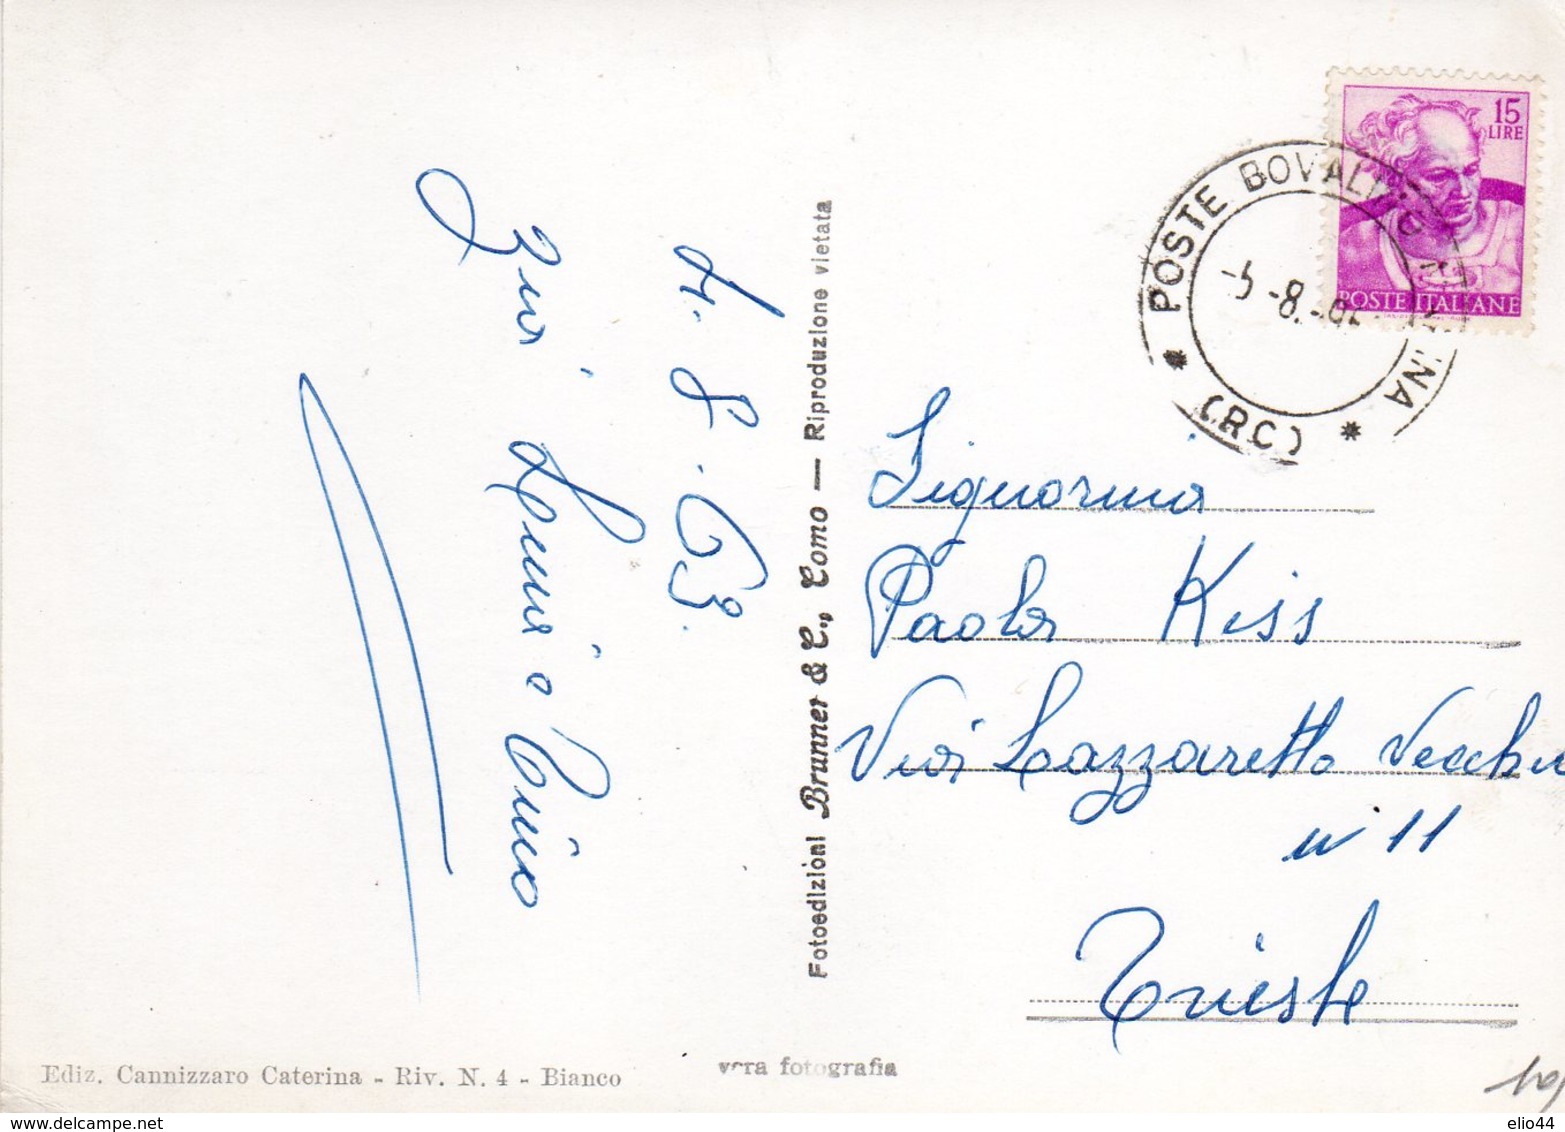 4.8.63.
Zia Lina e Nino
Fotoedizioni Brunner & C., Como — Riproduzione vietata
15
LIRE
POSTE ITALIANE
* POSTE BOVALINO MARINA *
(RC)
-8.
Signorina
Paola Kiss
Via Lazzaretto Vecchio
n° 11
Trieste
Ediz. Cannizzaro Caterina - Riv. N. 4 - Bianco
vera fotografia
www.delcampe.net
elio44